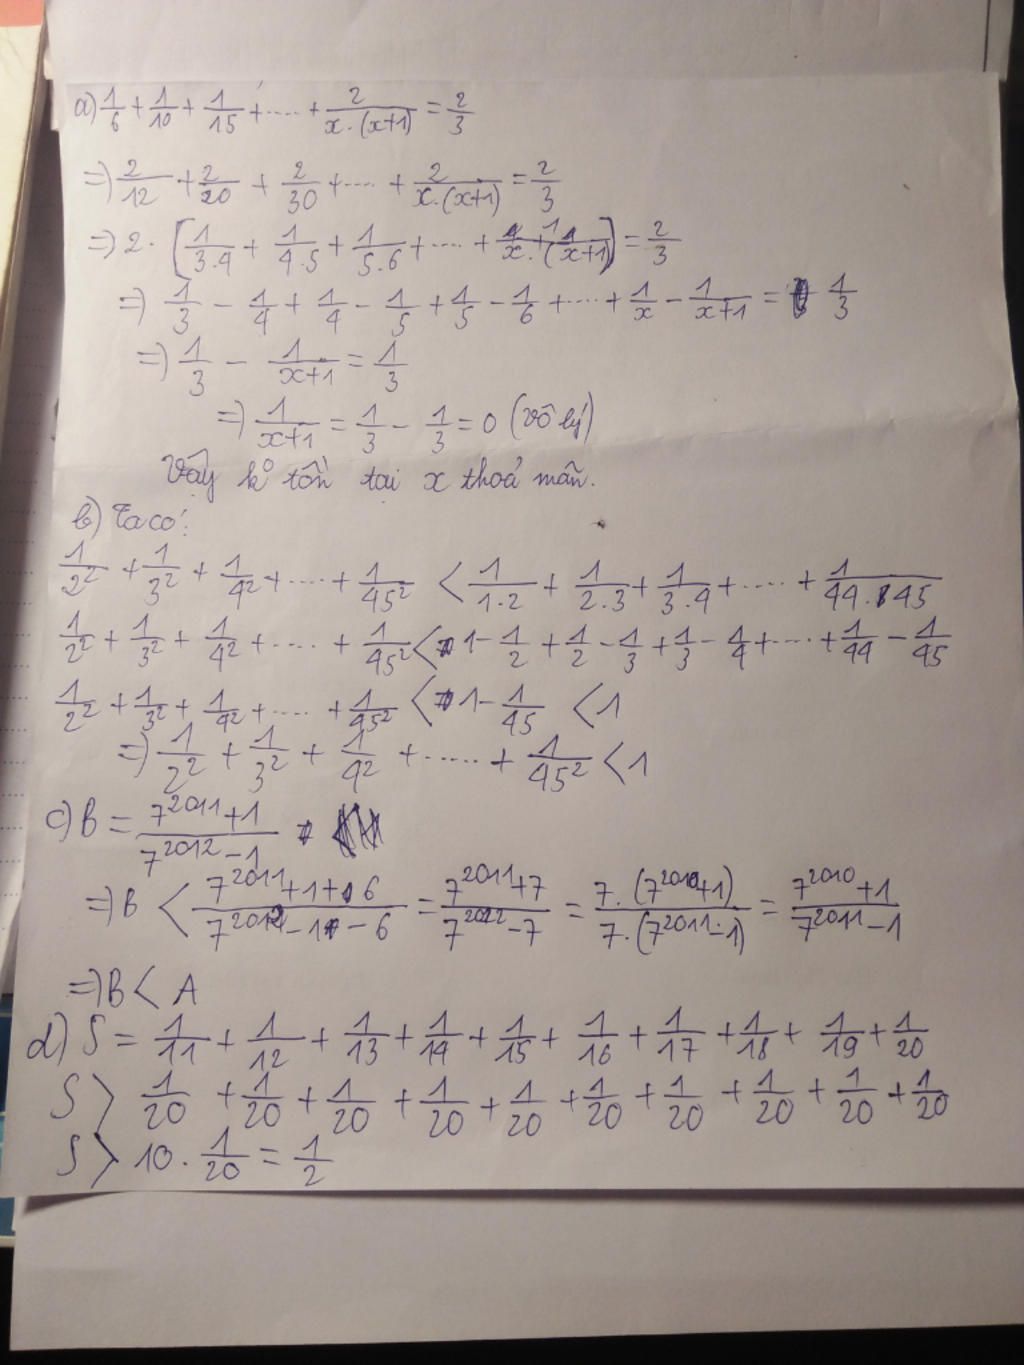 a) 1/6 + 1/10 + 1/15 + .... + 2/(x.(x+1)) = 2/3
=) 2/12 + 2/20 + 2/30 + .... + 2/(x.(x+1)) = 2/3
=) 2. [1/3.4 + 1/4.5 + 1/5.6 + .... + 1/(x.(x+1))] = 2/3
=) 1/3 - 1/4 + 1/4 - 1/5 + 1/5 - 1/6 + .... + 1/x - 1/(x+1) = 1/3
=) 1/3 - 1/(x+1) = 1/3
=) 1/(x+1) = 1/3 - 1/3 = 0 (vô lý)
Vậy k° tồn tại x thoả mãn.
b) Ta có:
1/2² + 1/3² + 1/4² + .... + 1/45² < 1/1.2 + 1/2.3 + 1/3.4 + .... + 1/44.45
1/2² + 1/3² + 1/4² + .... + 1/45² < 1 - 1/2 + 1/2 - 1/3 + 1/3 - 1/4 + .... + 1/44 - 1/45
1/2² + 1/3² + 1/4² + .... + 1/45² < 1 - 1/45 < 1
=) 1/2² + 1/3² + 1/4² + ..... + 1/45² < 1
c) B = (7^2011 + 1)/(7^2012 - 1)
=) B < (7^2011 + 1 + 6)/(7^2012 - 1 - 6) = (7^2011 + 7)/(7^2012 - 7) = 7.(7^2010 + 1)/7.(7^2011 - 1) = (7^2010 + 1)/(7^2011 - 1)
=) B < A
d) S = 1/11 + 1/12 + 1/13 + 1/14 + 1/15 + 1/16 + 1/17 + 1/18 + 1/19 + 1/20
S > 1/20 + 1/20 + 1/20 + 1/20 + 1/20 + 1/20 + 1/20 + 1/20 + 1/20 + 1/20
S > 10 . 1/20 = 1/2